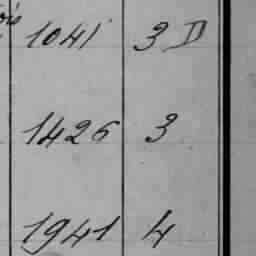 1041 3 D
1426 3
1941 4